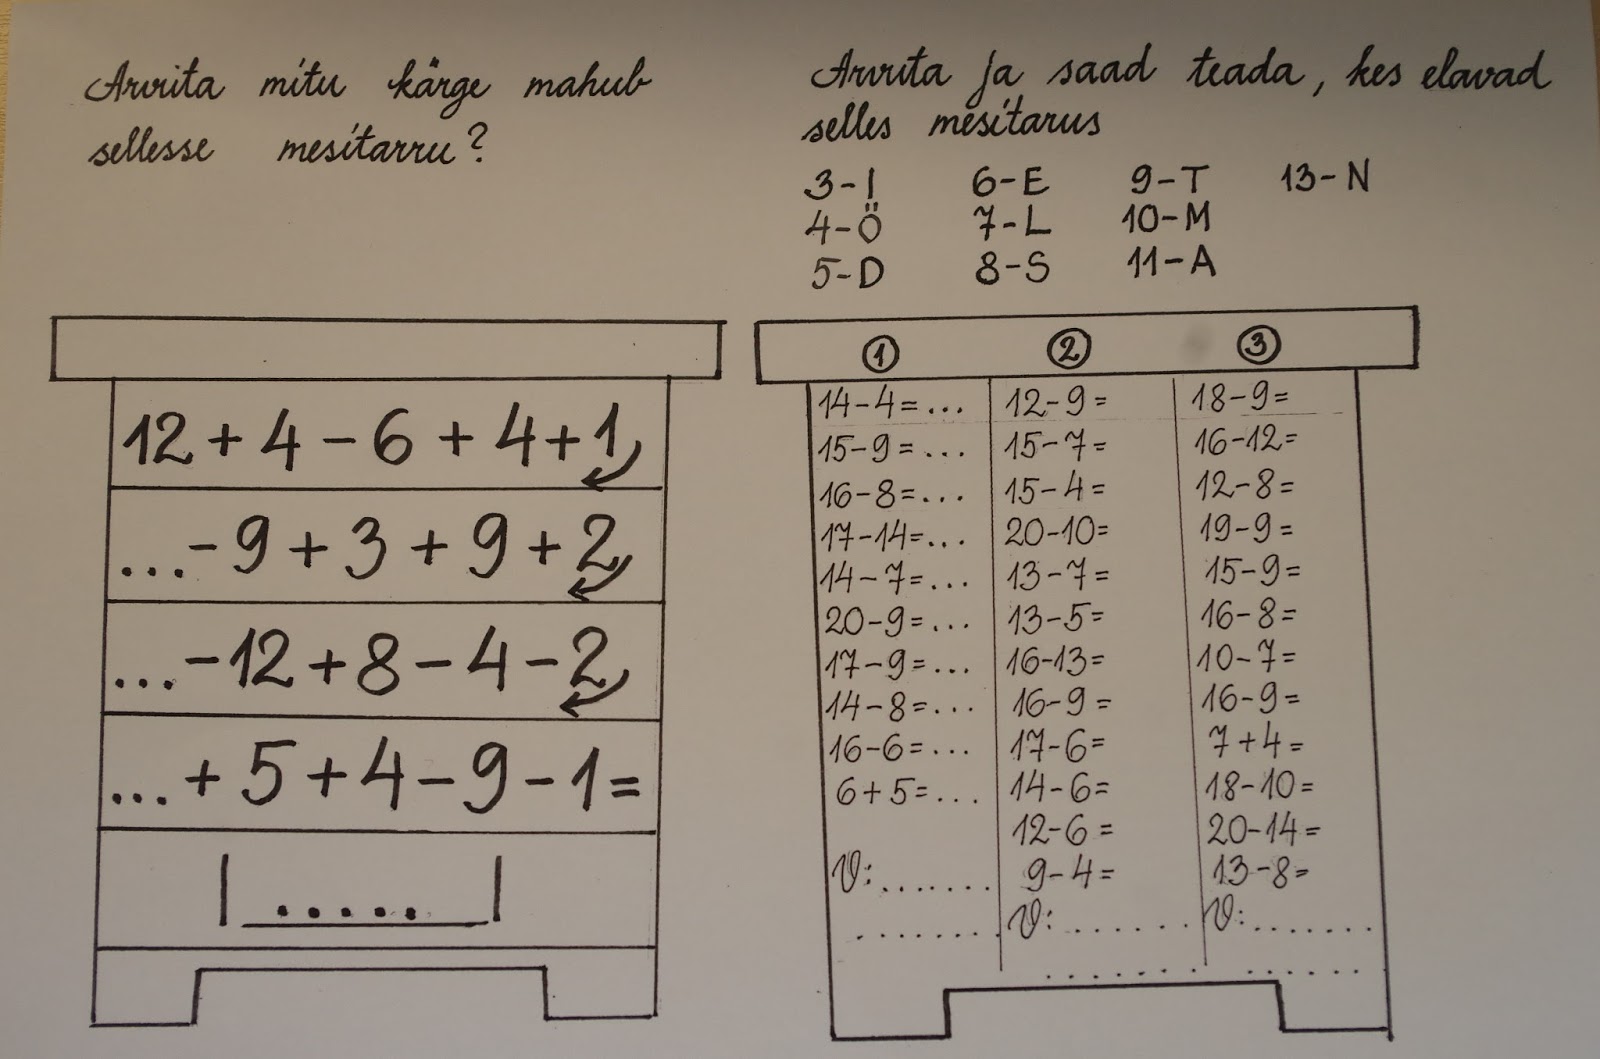 Arvita mitu kärge mahub
sellesse mesitarru?
12 + 4 - 6 + 4 + 1
... - 9 + 3 + 9 + 2
... - 12 + 8 - 4 - 2
... + 5 + 4 - 9 - 1 =
.....
Arvuta ja saad teada, kes elavad
selles mesitarus
3 - I 6 - E 9 - T 13 - N
4 - Ö 7 - L 10 - M
5 - D 8 - S 11 - A
1 2 3
14 - 4 = ...
15 - 9 = ...
16 - 8 = ...
17 - 14 = ...
14 - 7 = ...
20 - 9 = ...
17 - 9 = ...
14 - 8 = ...
16 - 6 = ...
6 + 5 = ...
V: .......
.......
12 - 9 =
15 - 7 =
15 - 4 =
20 - 10 =
13 - 7 =
13 - 5 =
16 - 13 =
16 - 9 =
17 - 6 =
14 - 6 =
12 - 6 =
9 - 4 =
V: ......
.......
18 - 9 =
16 - 12 =
12 - 8 =
19 - 9 =
15 - 9 =
16 - 8 =
10 - 7 =
16 - 9 =
7 + 4 =
18 - 10 =
20 - 14 =
13 - 8 =
V: .......
......